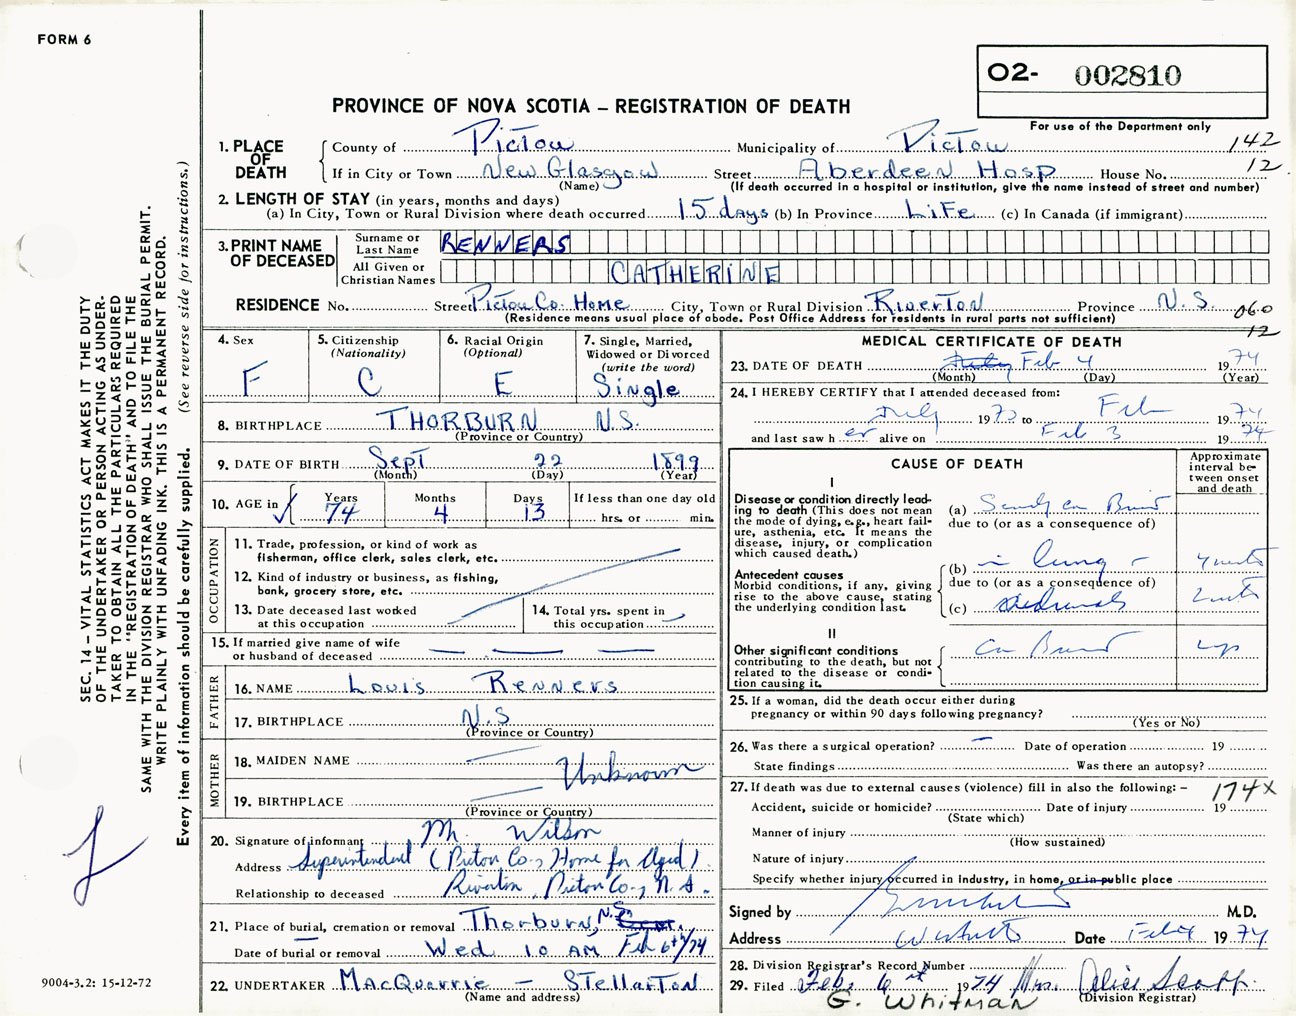 FORM 6
O2- 002810
PROVINCE OF NOVA SCOTIA – REGISTRATION OF DEATH
For use of the Department only
1. PLACE OF DEATH
County of Pictou Municipality of Pictou 142
If in City or Town New Glasgow Street Aberdeen Hosp House No. 12
(Name) (If death occurred in a hospital or institution, give the name instead of street and number)
2. LENGTH OF STAY (in years, months and days)
(a) In City, Town or Rural Division where death occurred 15 days (b) In Province Life (c) In Canada (if immigrant)
3. PRINT NAME OF DECEASED
Surname or Last Name RENNERS
All Given or Christian Names CATHERINE
RESIDENCE No. Street Pictou Co. Home City, Town or Rural Division Riverton Province N.S. 060
(Residence means usual place of abode. Post Office Address for residents in rural parts not sufficient) 12
4. Sex F
5. Citizenship (Nationality) C
6. Racial Origin (Optional) E
7. Single, Married, Widowed or Divorced (write the word) Single
8. BIRTHPLACE THORBURN N.S.
(Province or Country)
9. DATE OF BIRTH Sept 22 1899
(Month) (Day) (Year)
10. AGE in Years 74 Months 4 Days 13 If less than one day old hrs. or min.
OCCUPATION
11. Trade, profession, or kind of work as fisherman, office clerk, sales clerk, etc.
12. Kind of industry or business, as fishing, bank, grocery store, etc.
13. Date deceased last worked at this occupation
14. Total yrs. spent in this occupation
15. If married give name of wife or husband of deceased
FATHER
16. NAME Louis Renners
17. BIRTHPLACE N.S
(Province or Country)
MOTHER
18. MAIDEN NAME
Unknown
19. BIRTHPLACE
(Province or Country)
20. Signature of informant M. Wilson
Address Superintendent (Pictou Co., Home for Aged)
Relationship to deceased Riverton, Pictou Co., N.S.
21. Place of burial, cremation or removal Thorburn, N.S.
Date of burial or removal Wed 10 AM Feb 6th/74
22. UNDERTAKER MacQuarrie – Stellarton
(Name and address)
MEDICAL CERTIFICATE OF DEATH
23. DATE OF DEATH Feb 4 1974
(Month) (Day) (Year)
24. I HEREBY CERTIFY that I attended deceased from:
July 1973 to Feb 1974
and last saw her alive on Feb 3 1974
CAUSE OF DEATH
Approximate interval between onset and death
I
Disease or condition directly leading to death (This does not mean the mode of dying, e.g., heart failure, asthenia, etc. It means the disease, injury, or complication which caused death.)
(a)
due to (or as a consequence of)
Antecedent causes
Morbid conditions, if any, giving rise to the above cause, stating the underlying condition last.
(b) in lung
due to (or as a consequence of)
(c)
II
Other significant conditions contributing to the death, but not related to the disease or condition causing it.
25. If a woman, did the death occur either during pregnancy or within 90 days following pregnancy?
(Yes or No)
26. Was there a surgical operation? – Date of operation 19
State findings Was there an autopsy?
27. If death was due to external causes (violence) fill in also the following: – 174X
Accident, suicide or homicide? Date of injury 19
(State which)
Manner of injury
(How sustained)
Nature of injury
Specify whether injury occurred in industry, in home, or in public place
Signed by M.D.
Address Date Feb 4 1974
28. Division Registrar's Record Number
29. Filed Feb. 6 1974 Mrs. Alice Scott
(Division Registrar)
G. Whitman
SEC. 14 – VITAL STATISTICS ACT MAKES IT THE DUTY
OF THE UNDERTAKER OR PERSON ACTING AS UNDER-
TAKER TO OBTAIN ALL THE PARTICULARS REQUIRED
IN THE "REGISTRATION OF DEATH" AND TO FILE THE
SAME WITH THE DIVISION REGISTRAR WHO SHALL ISSUE THE BURIAL PERMIT.
WRITE PLAINLY WITH UNFADING INK. THIS IS A PERMANENT RECORD.
Every item of information should be carefully supplied. (See reverse side for instructions.)
9004-3.2: 15-12-72